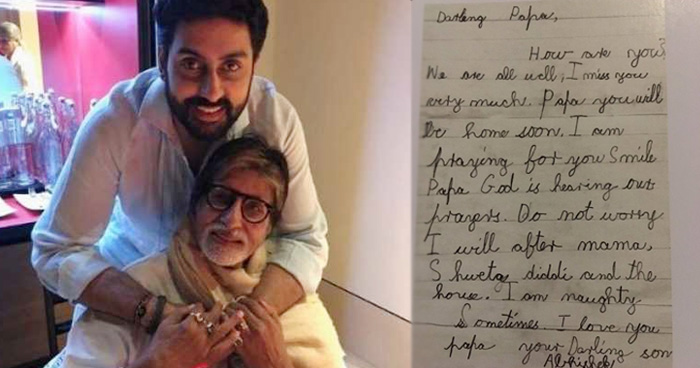 Darling Papa,
How are you?
We are all well, I miss you
very much. Papa you will
be home soon. I am
praying for you Smile
Papa God is hearing our
prayers. Do not worry
I will after mama,
Shweta diddi and the
house. I am naughty
Sometimes. I love you
papa your Darling son
Abhishek